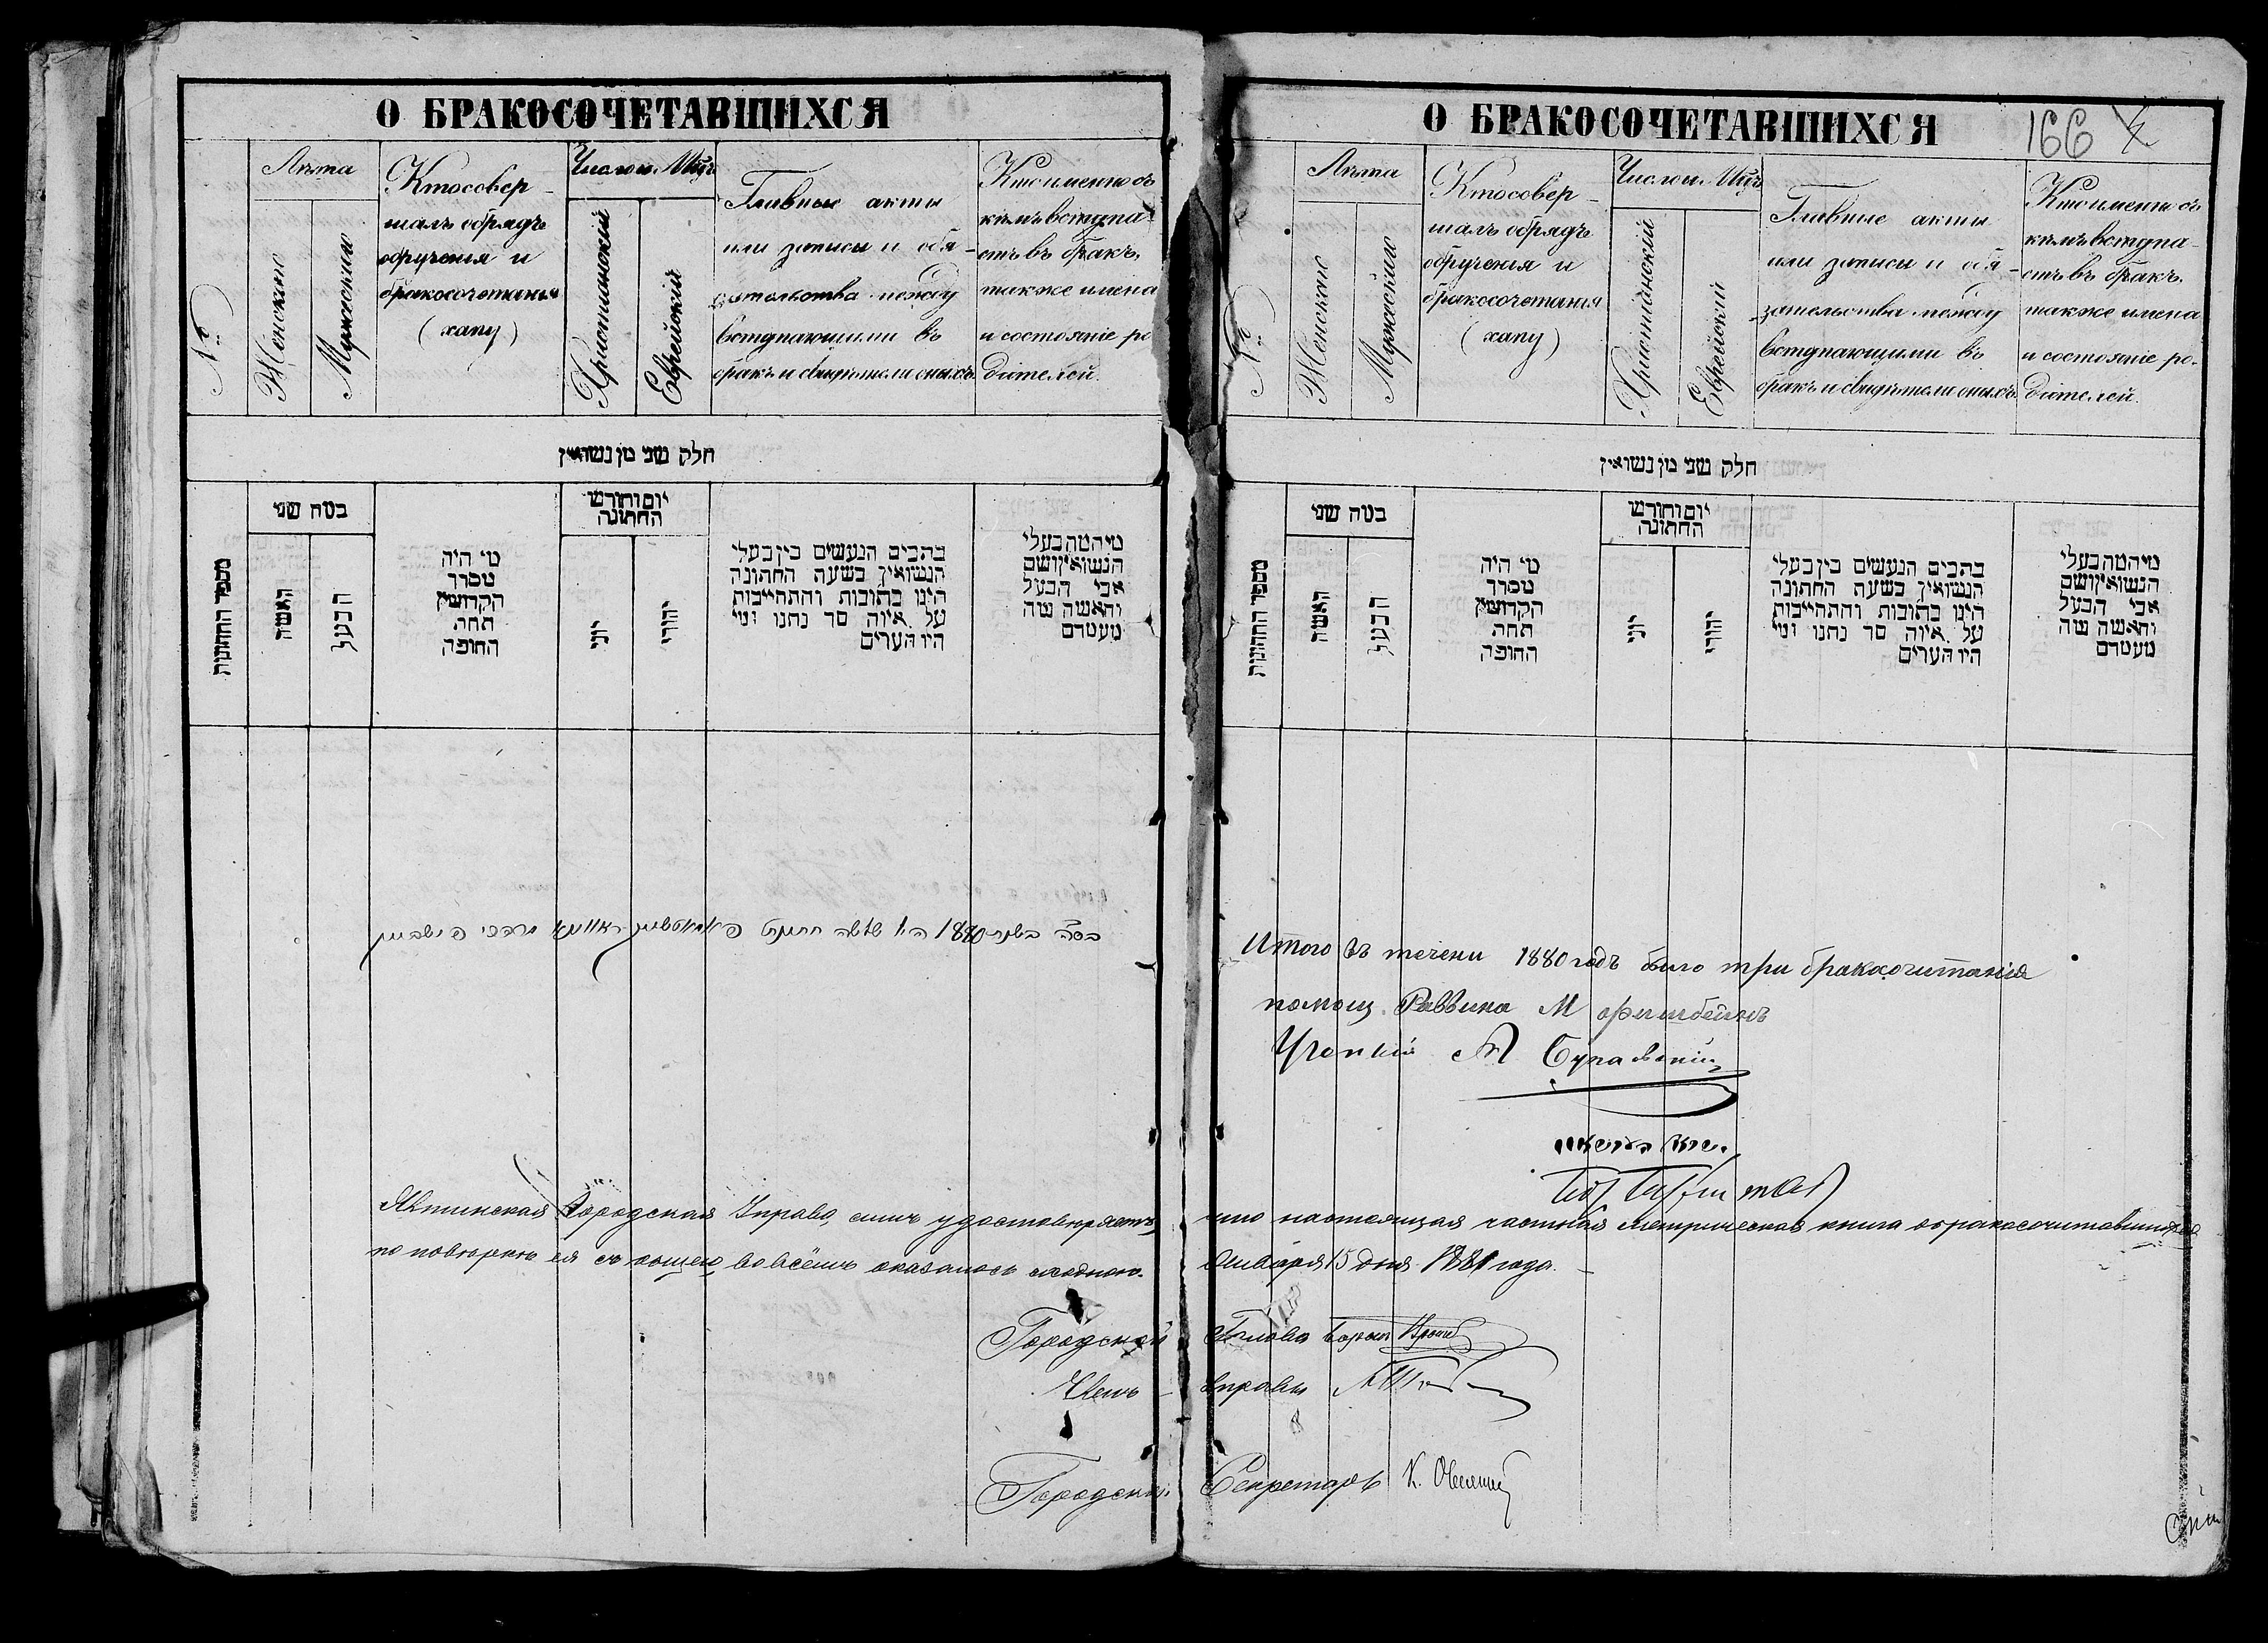 О БРАКОСОЧЕТАВШИХСЯ
№
Лѣта
Женскаго
Мужескаго
Кто совер-
шалъ обрядъ
обрученія и
бракосочетанія
(хапу)
Число и Мѣц
Христіанскій
Еврейскій
Главные акты
или записи и обя-
зательства между
вступающими въ
бракъ и свидѣтели оныхъ
Кто именно съ
кѣмъ вступа-
етъ въ бракъ,
также имена
и состояніе ро
дителей.
חלק שני מן נשואין
מספר החתונות
בטח שני
האשה
הבעל
מי היה
מסדר
הקדושין
תחת
החופה
יום וחודש
החתונה
יוני
יהודי
כתבים הנעשים בין בעלי
הנשואין בשעה החתונה
הינו כתובות והתחייבות
על איזה סך נתנו ומי
היו העדים
מי המה בעלי
הנשואין ושם
אבי הבעל
והאשה ומה
מעמדם
בסה בשנת 1880 היו שלשה חתונות
О БРАКОСОЧЕТАВШИХСЯ
166
№
Лѣта
Женскаго
Мужескаго
Кто совер-
шалъ обрядъ
обрученія и
бракосочетанія
(хапу)
Число и Мѣц
Христіанскій
Еврейскій
Главные акты
или записи и обя-
зательства между
вступающими въ
бракъ и свидѣтели оныхъ
Кто именно съ
кѣмъ вступа-
етъ въ бракъ.
также имена
и состояніе ро-
дителей.
חלק שני מן נשואין
מספר החתונות
בטח שני
האשה
הבעל
מי היה
מסדר
הקדושין
תחת
החופה
יום וחודש
החתונה
יוני
יהודי
כתבים הנעשים בין בעלי
הנשואין בשעה החתונה
הינו כתובות והתחייבות
על איזה סך נתנו ומי
היו העדים
מי המה בעלי
הנשואין ושם
אבי הבעל
והאשה ומה
מעמדם
Итого въ течени 1880 годъ было три бракосочитанія
помощ. Раввина М Фишбейнъ
Ученый М
Городская Управа, симъ удостовѣряетъ, что настоящая частная метрическая книга о бракосочитавшихся
по повѣркѣ ея съ общею, во всёмъ оказалось сходною. Января 15 дня 1881 года.
Городской Голова
Членъ Управы
Городской Секретарь К.